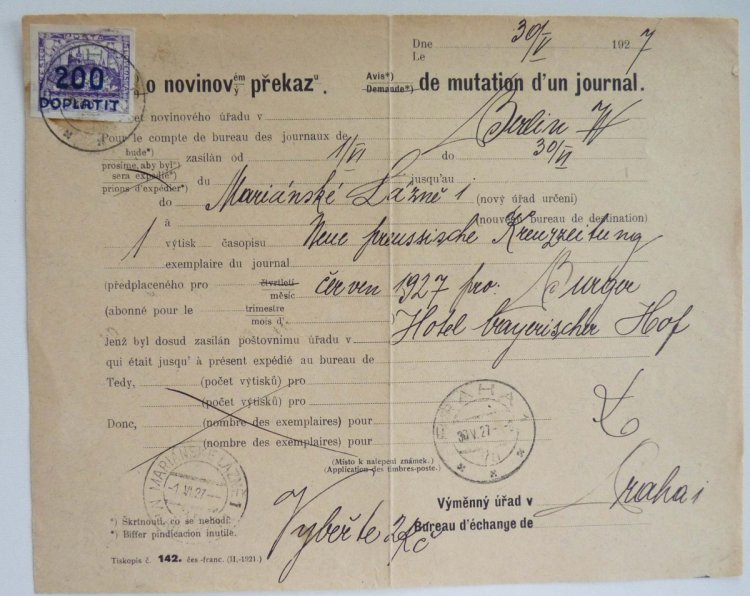 Dne 30/V 1927
Le
200
DOPLATIT
o novinov ém/ý překaz u. Avis*) Demande*) de mutation d'un journal.
et novinového úřadu v Berlin W
Pour le compte de bureau des journaux de
bude*)
prosíme, aby byl*) zasílán od 1/VI do 30/VI
sera expédié*)
prions d'expédier*) du jusqu'au
do Mariánské Lázně 1 (nový úřad určení)
à (nouveau bureau de destination)
1 výtisk časopisu Neue preussische Kreuzzeitung
exemplaire du journal
(předplaceného pro čtvrtletí měsíc červen 1927 pro. Burger
(abonné pour le trimestre mois d'
Hotel bayerischer Hof
Jenž byl dosud zasílán poštovnímu úřadu v
qui était jusqu' à présent expédié au bureau de
Tedy, (počet výtisků) pro
(počet výtisků) pro
Donc, (nombre des exemplaires) pour
(nombre des exemplaires) pour
PRAHA 1
30.V.27
(Místo k nalepení známek.)
(Application des timbres-poste.)
MARIÁNSKÉ LÁZNĚ 1
-1.VI.27
Výměnný úřad v Praha 1
Bureau d'échange de
*) Škrtnouti, co se nehodí.
*) Biffer pindicacion inutile.
Vyberte 2 Kč
Tiskopis č. 142. čes-franc. (II.-1921.)